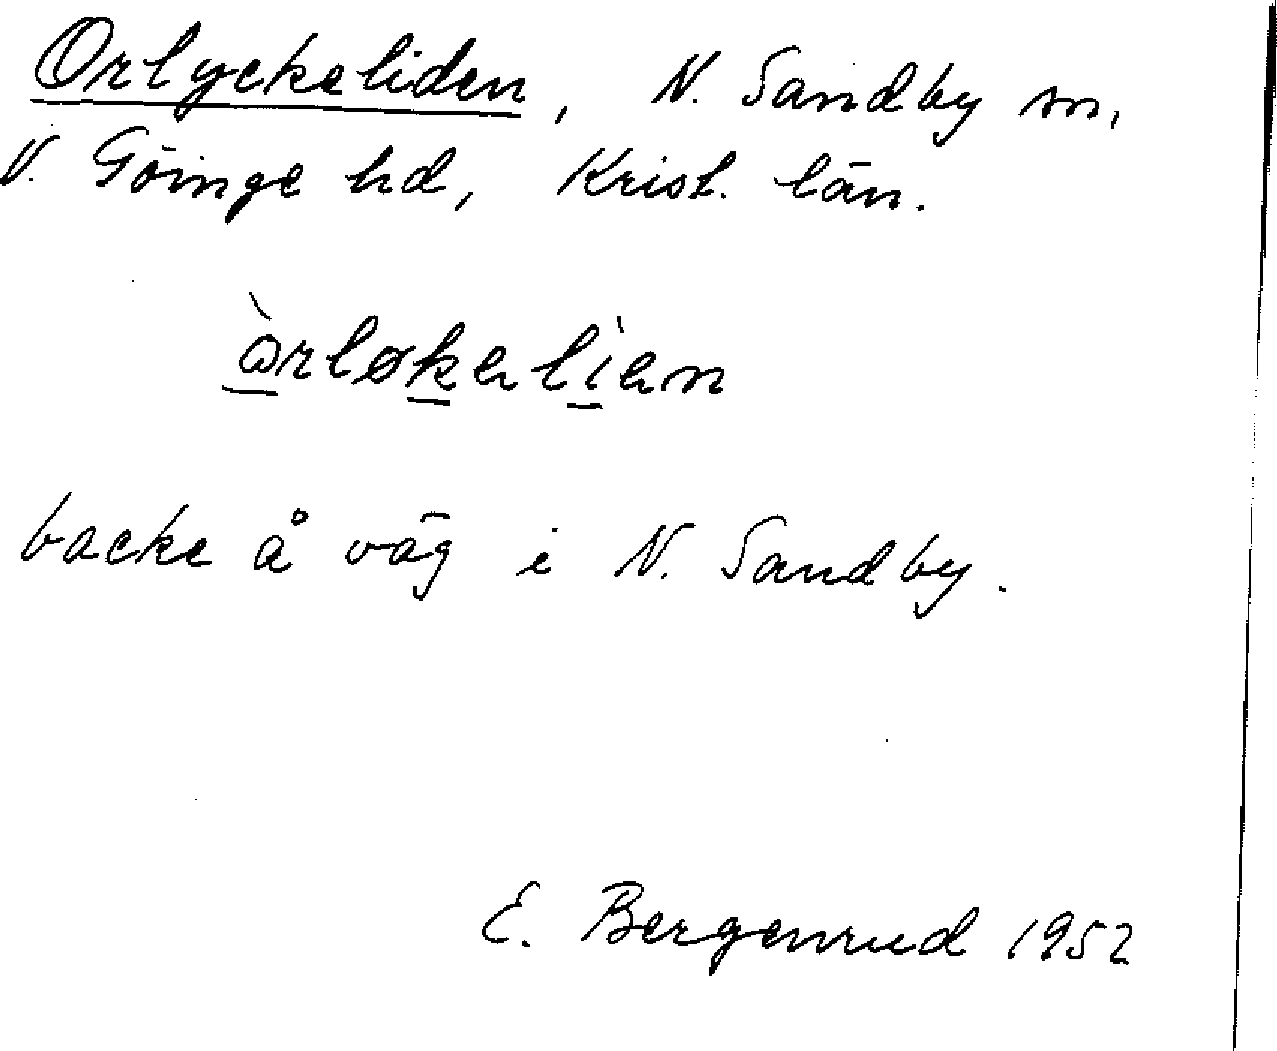 Orlyckeliden, N. Sandby sn,
V. Göinge hd, Krist. län.
ɷ̀rløkəlìən
backe å väg i N. Sandby.
E. Bergenrud 1952